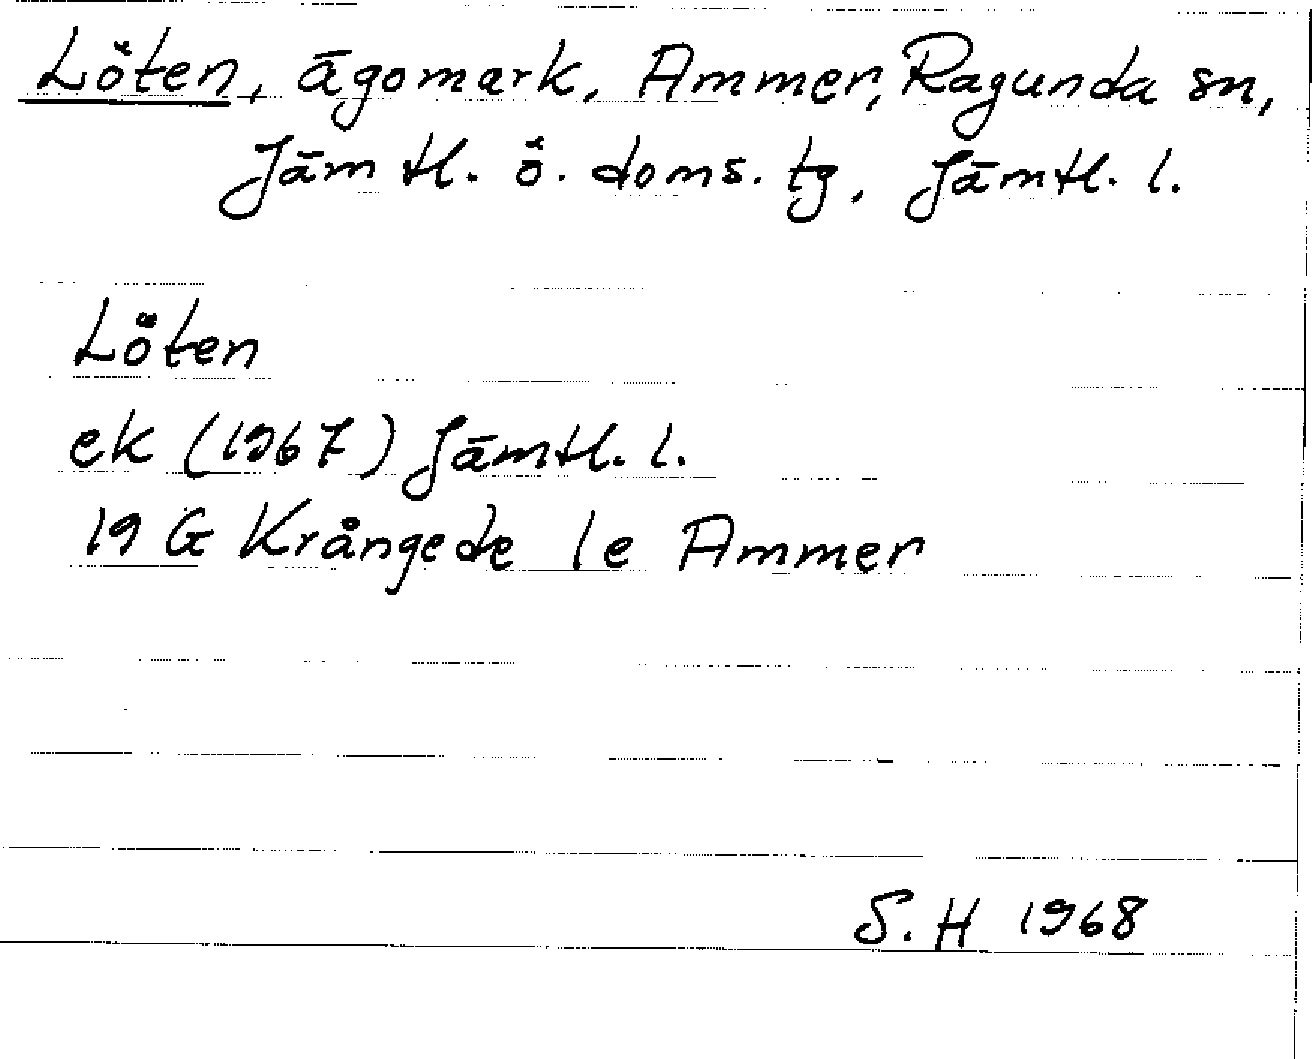 Löten, ägomark, Ammer, Ragunda sn,
Jämtl. ö. doms. tg, Jämtl. l.
Löten
ek (1967) Jämtl. l.
19 G Krångede 1e Ammer
S.H 1968